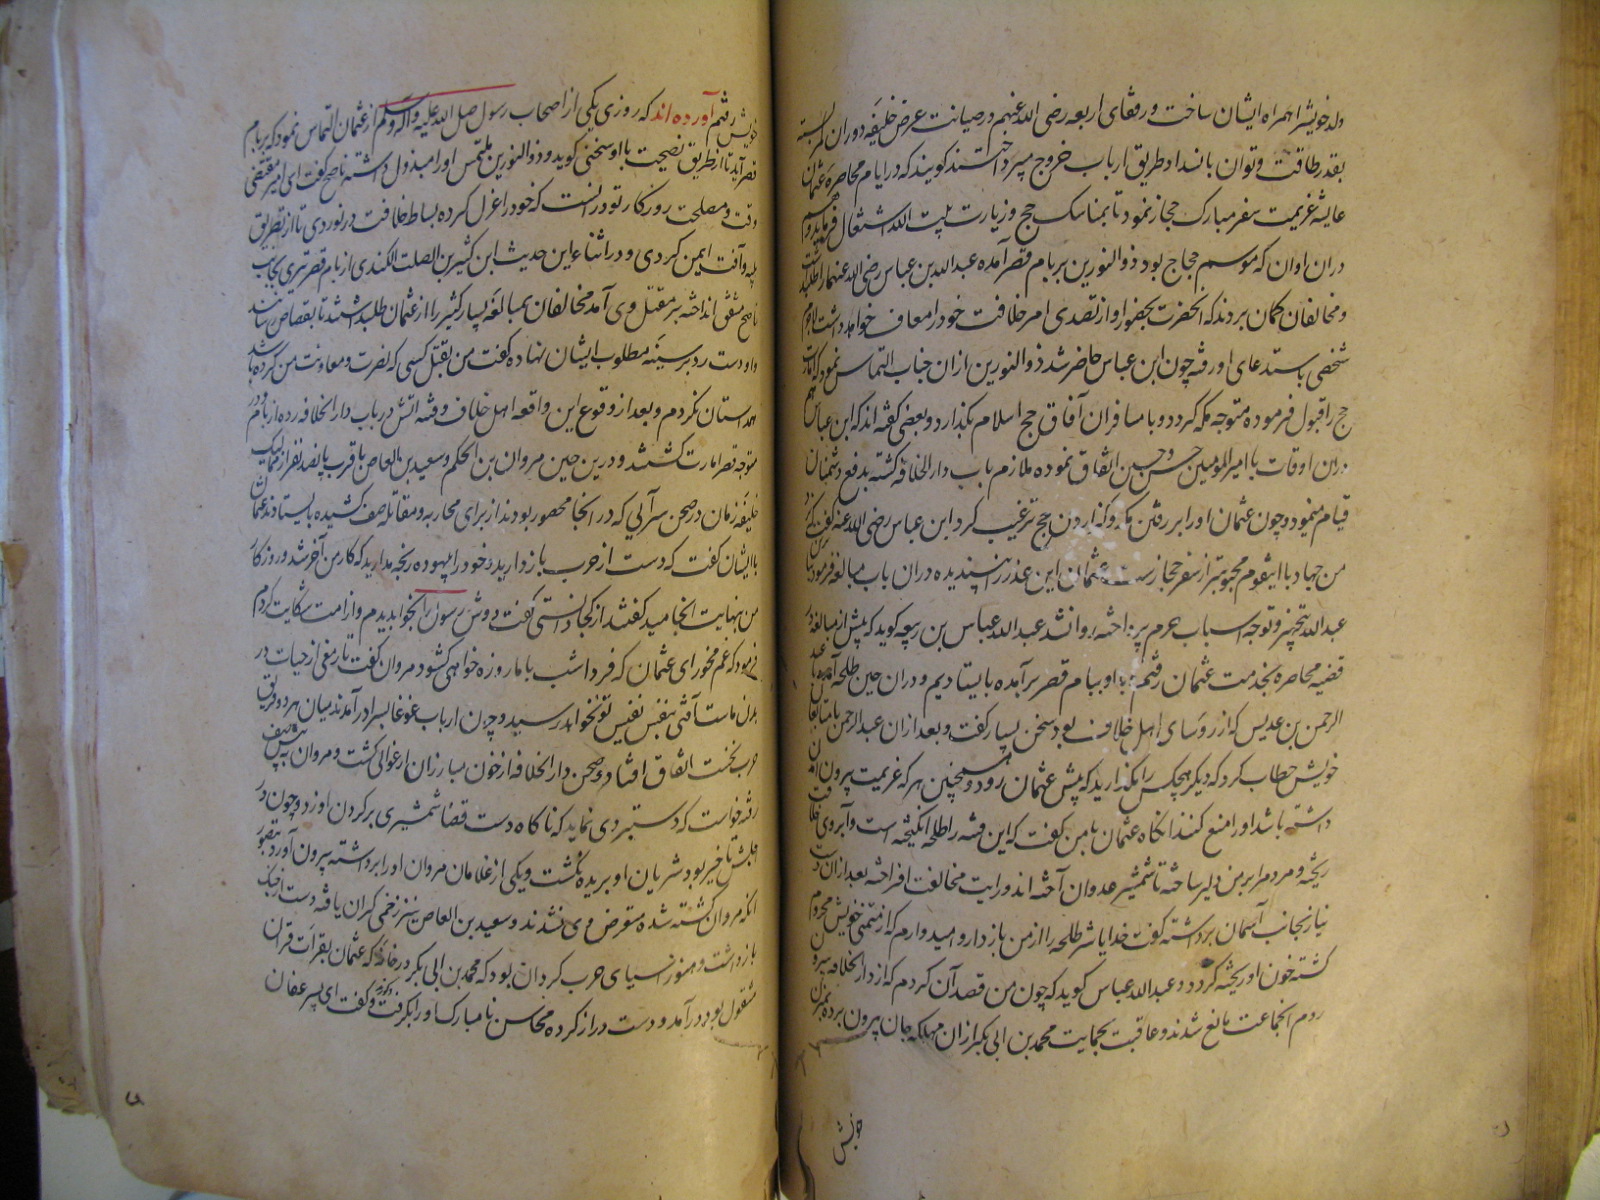 ولد خویش را همراه ایشان ساخت و رفقای اربعه رضی الله عنهم در صیانت عرض خلیفه دوران کمر بسته
بقدر طاقت و توان بانسداد طریق ارباب خروج می پرداختند کویند که در ایام محاصره عثمان
عایشه عزیمت سفر مبارک حجاز نمود تا بمناسک حج و زیارت بیت الله اشتغال فرماید و هم
دران اوان که موسم حجاج بود ذوالنورین بر بام قصر آمده عبدالله بن عباس رضی الله عنهما را طلب داشت
و مخالفان کمان بردند که آنحضرت بحضور او از تصدی امر خلافت خود را معاف خواهد داشت لاجرم
شخصی باستدعای او رفته چون ابن عباس حاضر شد ذوالنورین ازان جناب التماس نمود که امارت
حج را قبول فرموده متوجه مکه کردد و با مسافران آفاق حج اسلام بکذارد و بعضی کفته اند که ابن عباس هم
دران اوقات با امیرالمومنین حسن و حسین اتفاق نموده ملازم باب دار الخلافة کشته بدفع دشمنان
قیام مینمود و چون عثمان او را بر رفتن مکه و کذاردن حج ترغیب کرد ابن عباس رضی الله عنه کفت که نزد
من جهاد با این قوم محبوبتر از سفر حجاز ست عثمان این عذر را نپسندیده دران باب مبالغه فرمود
عبدالله بتجهیز و توجه اسباب حرم پرداخته روانشد عبدالله عباس بن ربیعه کوید که پیش از مبالغه در
قضیه محاصره بخدمت عثمان رفتم و با او ببام قصر برآمده بایستادیم و دران حین طلحه آمد با عبد
الرحمن بن عدیس که از روسای اهل خلاف بود سخن بسیار کفت و بعد ازان عبد الرحمن با متابعان
خویش خطاب کرد که دیکر هیچکس را مکذارید که پیش عثمان رود و همچنین هر که عزیمت بیرون آمدن
داشته باشد او را منع کنند آنکاه عثمان با من کفت که این فتنه را طلحه انکیخته است و آبروی خلافت
ریخته و مردم را بر من دلیر ساخته تا شمشیر عدوان آخته اند و رایت مخالفت افراخته بعد ازان دست
نیاز بجانب آسمان برداشته کفت خدایا شر طلحه را از من باز دار و امیدوارم که از متمنی خویش محروم
کشته خون او ریخته کردد و عبدالله عباس کوید که چون من قصد آن کردم که از دار الخلافه بیرون
روم آنجماعت مانع شدند و عاقبت بحمایت محمد بن ابی بکر ازان مهلکه جان بیرون برده بمنزل
خویش
خویش رفتم آورده اند که روزی یکی از اصحاب رسول صلی الله علیه و آله وسلم از عثمان التماس نمود که بر بام
قصر آید تا از طریق نصیحت با او سخنی کوید و ذوالنورین ملتمس او را مبذول داشته ناصح کفت ای امیر مقتضی
وقت و مصلحت روزکار تو در آنست که خود را عزل کرده بساط خلافت در نوردی تا از تطریق
بلیه و آفت ایمن کردی و در اثناء این حدیث ابن کثیر بن الصلت الکندی از بام قصر تیری بجانب
ناصح مشفق انداخته بر مقتل وی آمد مخالفان بمبالغه بسیار کثیر را از عثمان طلب داشتند تا بقصاص رسانند
و او دست رد بر سینه مطلوب ایشان نهاده کفت من بقتل کسی که نصرت و معاونت من کرده باشد
همداستان نکردم و بعد از وقوع این واقعه اهل خلاف و فتنه آتش در باب دار الخلافه زده از بام و در
متوجه قصر امارت کشتند و درین حین مروان بن الحکم و سعید بن العاص با قرب پانصد نفر از ممالیک
خلیفه زمان در صحن سرائی که در آنجا محصور بودند از برای محاربه و مقاتله صف کشیده بایستادند عثمان
با ایشان کفت که دست از حرب باز دارید و خود را بیهوده رنجه مدارید که کار من آخر شد و روزکار
من بنهایت انجامید کفتند از کجا دانستی کفت دوش رسول را بخواب دیدم و از امت شکایت کردم
فرمود که غم مخور ای عثمان که فردا شب با ما روزه خواهی کشود مروان کفت تا رمقی از حیات در
بدن ماست آفتی بنفس نفیس تو نخواهد رسید و چون ارباب غوغا بسرا درآمدند میان هر دو فریق
حرب سخت اتفاق افتاد و صحن دار الخلافه از خون مبارزان ارغوانی کشت و مروان به پیش صف
رفته خواست که دستبردی نماید که ناکاه دست قضا شمشیری بر کردن او زد و چون در
اجلش تاخیر بود شریان او بریده نکشت و یکی از غلامان مروان او را برداشته بیرون آورد بتصور
آنکه مروان کشته شده متعرض وی نشدند و سعید بن العاص نیز زخمی کران یافته دست از جنک
بازداشت و هنوز آسیای حرب کردان بود که محمد بن ابی بکر در خانه که عثمان بقراءت قران
مشغول بود درآمد و دست دراز کرده محاسن نامبارک او را بکرفت و کفت ای پسر عفان